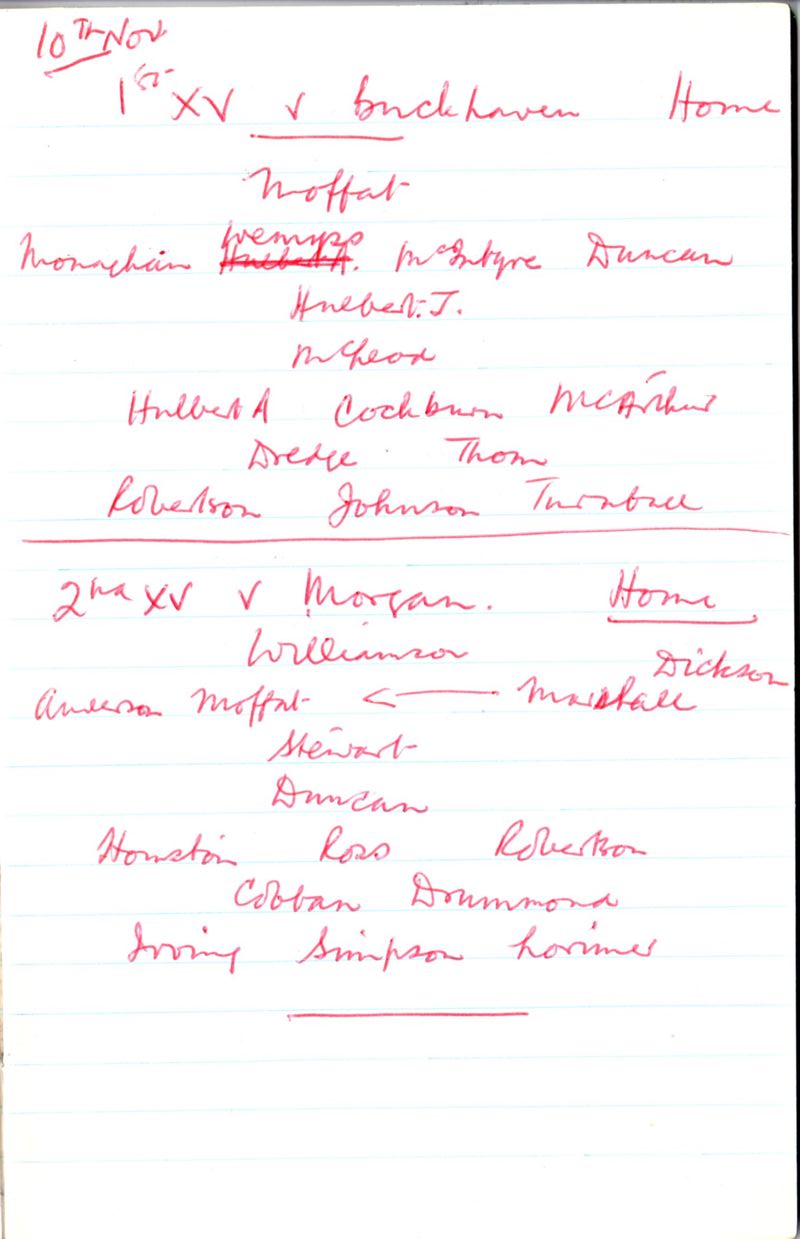 10TH Nov
1st XV v Buckhaven Home
Moffat
Wemyss
Monaghan Hulbert A. McIntyre Duncan
Hulbert. J.
McLeod
Hulbert A Cockburn McArthur
Dredge Thom
Robertson Johnson Turnbull
2nd XV v Morgan. Home
Williamson
Dickson
Anderson Moffat <— Marshall
Stewart
Duncan
Houston Ross Robertson
Cobban Drummond
Irving Simpson Lorimer